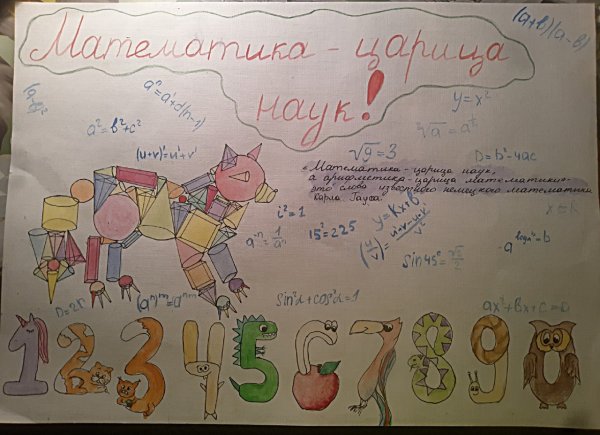 (a+b)(a-b)
Математика - царица
наук!
(a-b)²
aⁿ=a¹+d(n-1)
y=x²
a²=b²+c²
(u+v)'=u'+v'
√9=3
D=b²-4ac
"Математика - царица наук,
а арифметика - царица математики" -
это слова известного немецкого математика
Карла Гаусса.
i²=1
y=kx+b
a⁻ⁿ=1/aⁿ
15²=225
Sin45°=√2/2
D=2R
(aⁿ)ᵐ=aⁿᵐ
Sin²α+cos²α=1
ax²+bx+c=0
1 2 3 4 5 6 7 8 9 0